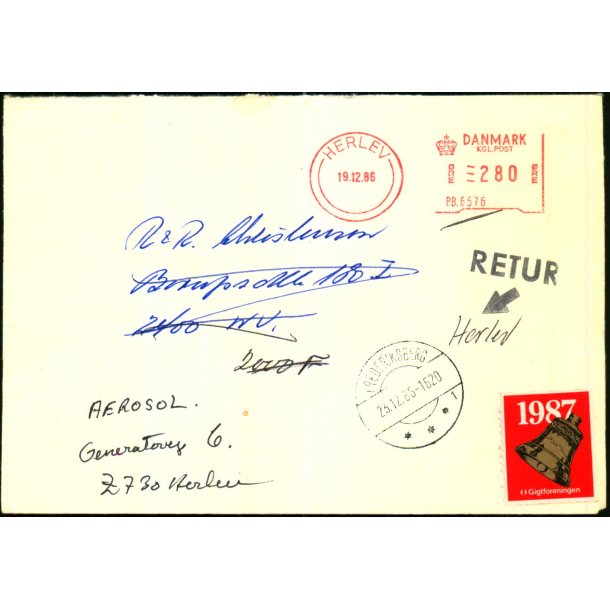 HERLEV
19.12.86
DANMARK
KGL.POST
ØRE 280 ØRE
PB.6576
R & R. Christensen
180 I
2400 NV.
2000 F
RETUR
Herlev
FREDERIKSBERG
23.12.86-1620
1
AEROSOL.
Generatorvej 6.
2730 Herlev
1987
Gigtforeningen